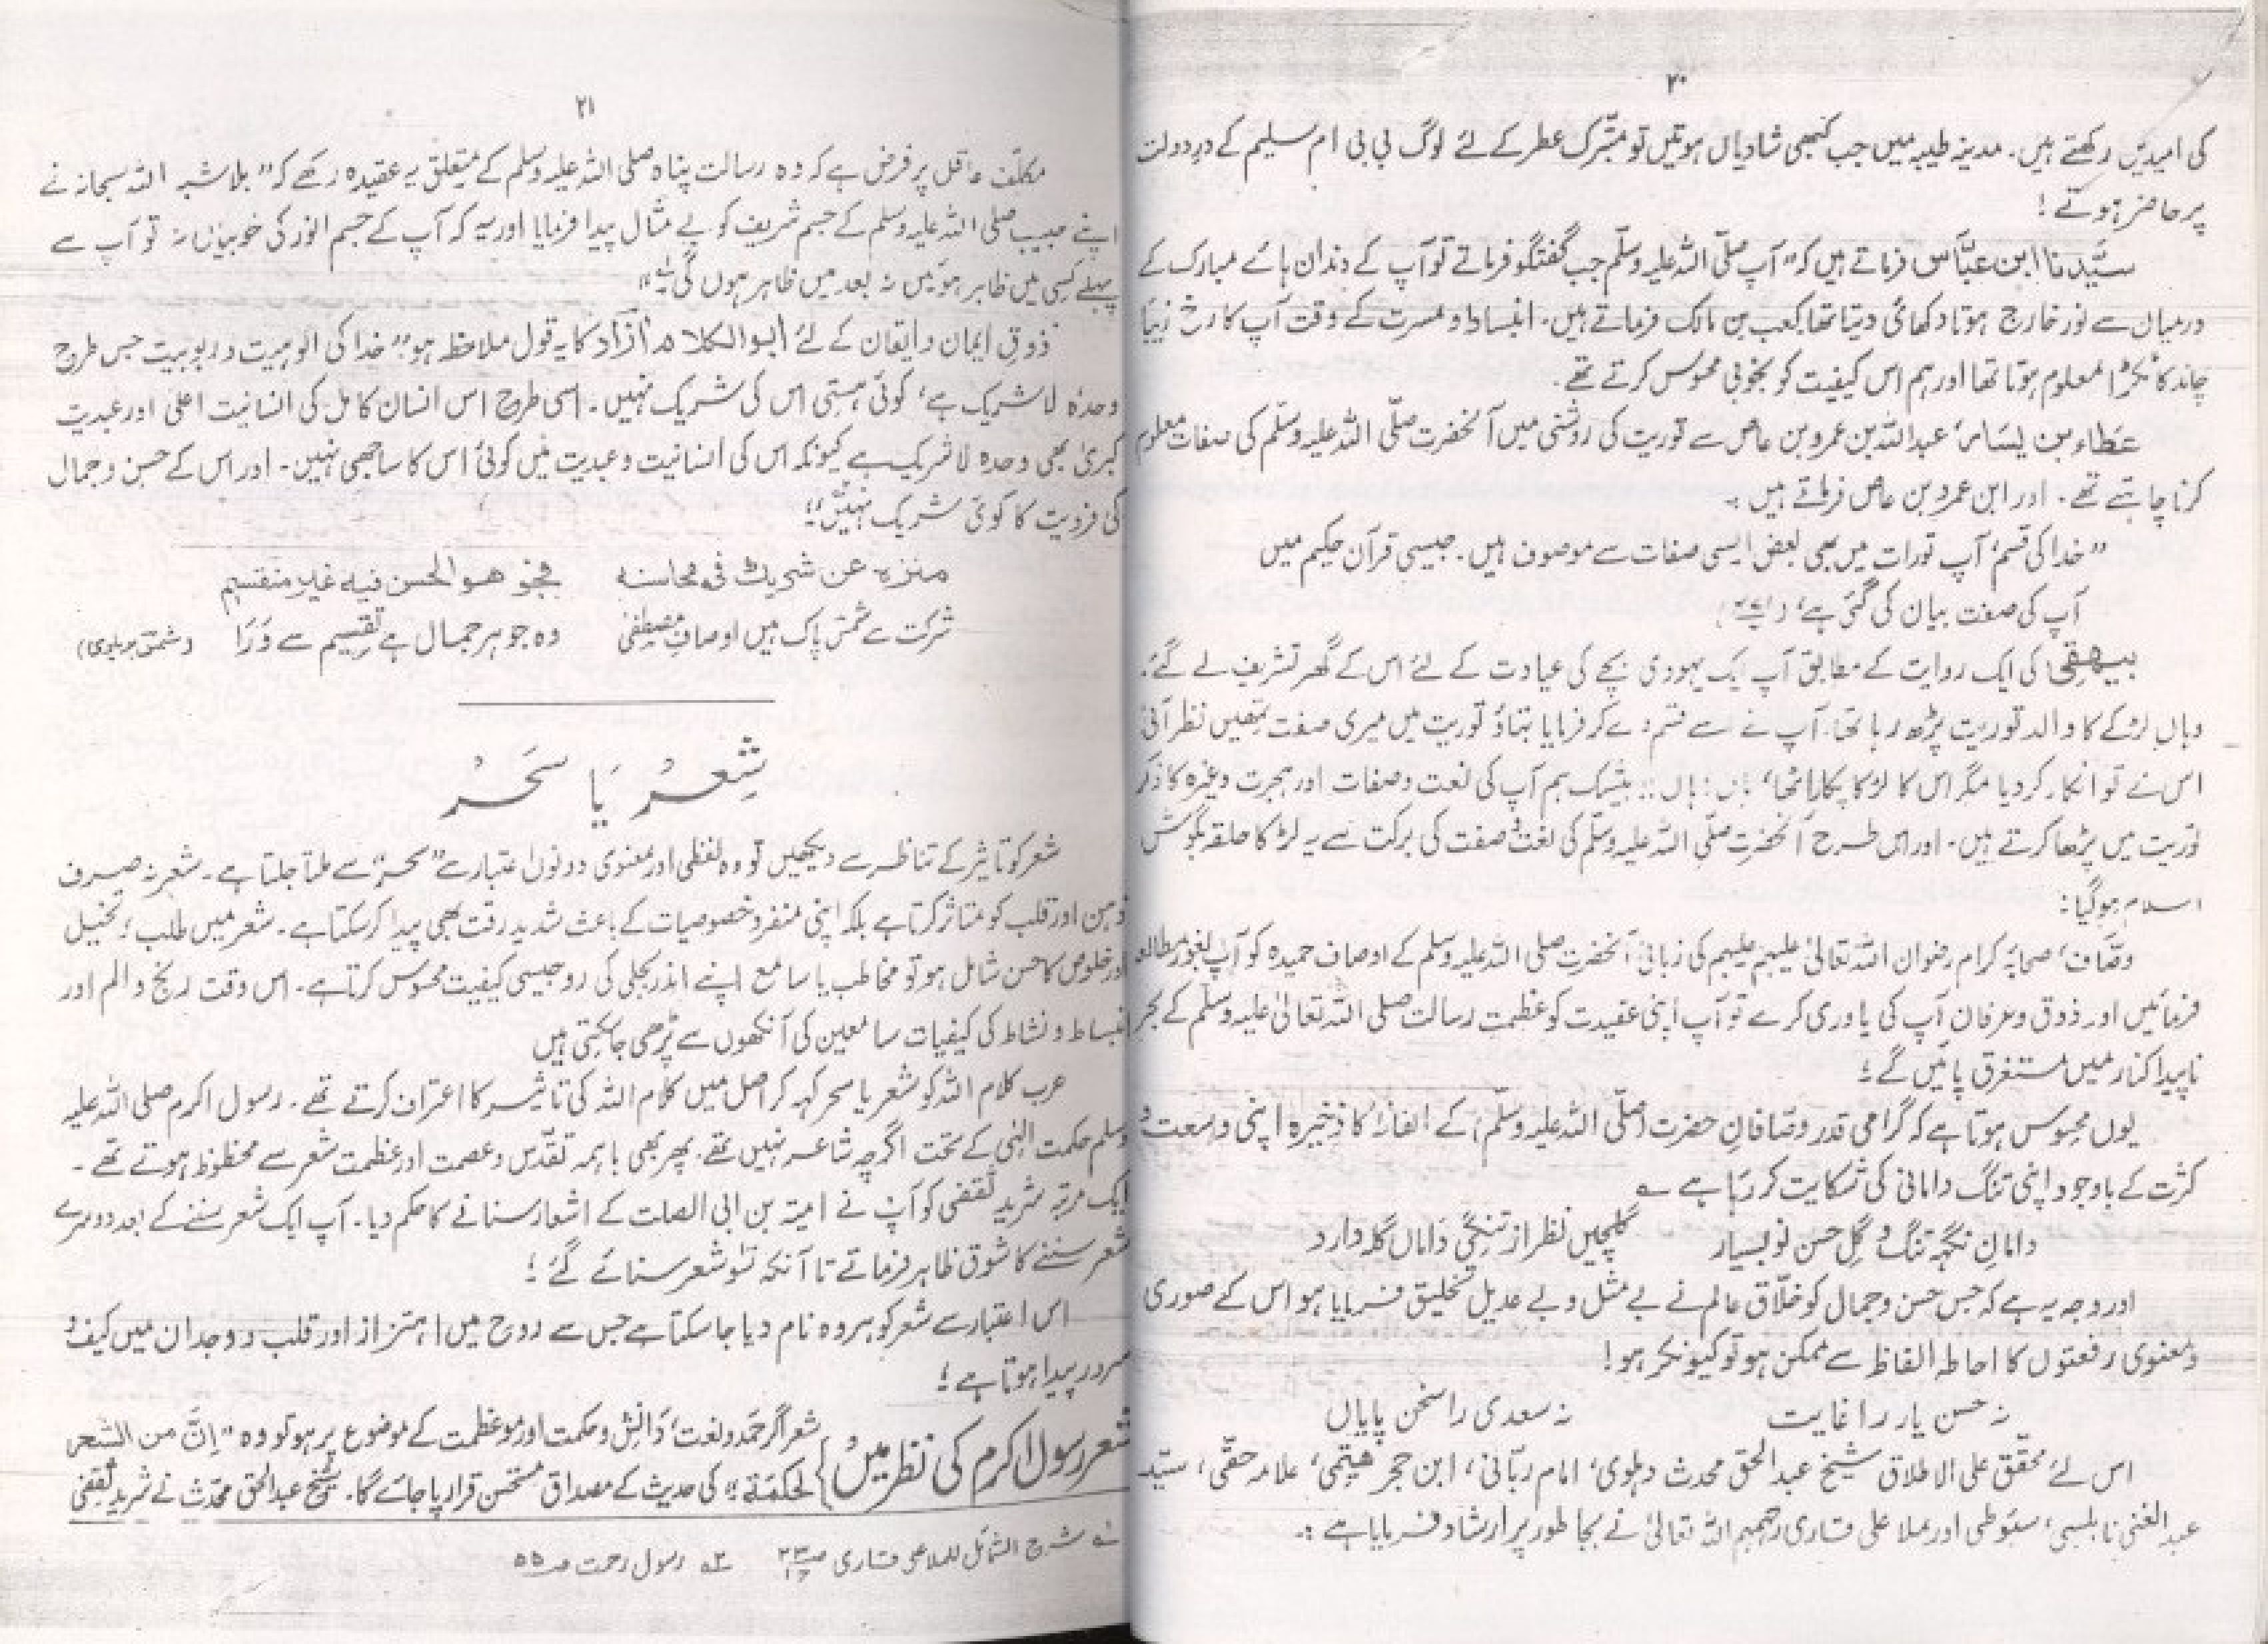 ۲۰
کی امیدیں رکھتے ہیں۔ مدینہ طیبہ میں جب کبھی شادیاں ہوتیں تو متبرک عطر کے لئے لوگ بی بی ام سلیم کے درِ دولت
پر حاضر ہوتے!
سیّدنا ابن عبّاس فرماتے ہیں کہ" آپ صلّی اللہ علیہ وسلّم جب گفتگو فرماتے تو آپ کے دندان ہائے مبارک کے
درمیان سے نور خارج ہوتا دکھائی دیتا تھا کعب بن مالک فرماتے ہیں۔ انبساط و مسرت کے وقت آپ کا رخ زیبا
چاند کا ٹکڑا معلوم ہوتا تھا اور ہم اس کیفیت کو بخوبی محسوس کرتے تھے۔
عطاء بن یسار، عبداللہ بن عمرو بن عاص سے توریت کی روشنی میں آنحضرت صلّی اللہ علیہ وسلّم کی صفات معلوم
کرنا چاہتے تھے۔ اور ابن عمرو بن عاص فرماتے ہیں :۔
" خدا کی قسم، آپ تورات میں بھی بعض ایسی صفات سے موصوف ہیں۔ جیسی قرآن حکیم میں
آپ کی صفت بیان کی گئی ہے،
بیہقی کی ایک روایت کے مطابق آپ ایک یہودی بچے کی عیادت کے لئے اس کے گھر تشریف لے گئے۔
وہاں لڑکے کا والد توریت پڑھ رہا تھا۔ آپ نے اسے قسم دے کر فرمایا بتاؤ توریت میں میری صفت تمھیں نظر آئی
اس نے تو انکار کر دیا مگر اس کا لڑکا پکار اٹھا، ہاں! ہاں!! بیشک ہم آپ کی نعت و صفات اور ہجرت وغیرہ کا ذکر
توریت میں پڑھا کرتے ہیں۔ اور اس طرح آنحضرت صلّی اللہ علیہ وسلّم کی نعت و صفت کی برکت سے یہ لڑکا حلقہ بگوش
اسلام ہو گیا!
وصّاف، صحابۂ کرام رضوان اللہ تعالیٰ علیہم علیہم کی زبانی آنحضرت صلی اللہ علیہ وسلم کے اوصاف حمیدہ کو آپ بغور مطالعہ
فرمائیں اور ذوق و عرفان آپ کی یاوری کرے تو آپ اپنی عقیدت کو عظمتِ رسالت صلی اللہ تعالیٰ علیہ وسلّم کے بحر
ناپیدا کنار میں مستغرق پائیں گے!
یوں محسوس ہوتا ہے کہ گرامی قدر وصافانِ حضرت (صلّی اللہ علیہ وسلّم) کے الفاظ کا ذخیرہ اپنی وسعت و
کثرت کے باوجود اپنی تنگ دامانی کی شکایت کر رہا ہے ؎
دامانِ نگہ تنگ و گلِ حسن تو بسیار گلچیں نظر از تنگیِ داماں گلہ دارد
اور وجہ یہ ہے کہ جس حسن و جمال کو خلّاق عالم نے بے مثل و بے عدیل تخلیق فرمایا ہو اس کے صوری
و معنوی رفعتوں کا احاطہ الفاظ سے ممکن ہو تو کیونکر ہو!
نہ حسن یار را غایت نہ سعدی را سخن پایاں
اس لئے محقّق علی الاطلاق شیخ عبدالحق محدث دہلوی، امام ربّانی، ابن حجر ھیتمی، علامہ حقّی، سیّد
عبدالغنی نابلسی، سیّوطی اور ملا علی قاری رحمہم اللہ تعالیٰ نے بجا طور پر ارشاد فرمایا ہے :۔
۲۱
مکلّف عاقل پر فرض ہے کہ وہ رسالت پناہ صلی اللہ علیہ وسلم کے متعلق یہ عقیدہ رکھے کہ" بلاشبہ اللہ سبحانہ نے
اپنے حبیب صلی اللہ علیہ وسلم کے جسم شریف کو بے مثال پیدا فرمایا اور یہ کہ آپ کے جسم انور کی خوبیاں نہ تو آپ سے
پہلے کسی میں ظاہر ہوئیں نہ بعد میں ظاہر ہوں گی"
ذوقِ ایمان و ایقان کے لئے ابوالکلام آزاد کا یہ قول ملاحظہ ہو" خدا کی الوہیت و ربوبیت جس طرح
وحدہٗ لاشریک ہے، کوئی ہستی اس کی شریک نہیں۔ اسی طرح اس انسان کامل کی انسانیت اعلیٰ اور عبدیت
کبریٰ بھی وحدہ لاشریک ہے کیونکہ اس کی انسانیت و عبدیت میں کوئی اس کا ساجھی نہیں۔ اور اس کے حسن و جمال
کی فردیت کا کوئی شریک نہیں"
منزہ عن شریک فی محاسنہ فجوھر الحسن فیہ غیر منقسم
شرکت سے شمس پاک ہیں اوصافِ مصطفٰی وہ جوہر جمال ہے تقسیم سے وَرَا (شمس بریلوی)
شِعرْ یَا سَحَرْ
شعر کو تاثیر کے تناظر سے دیکھیں تو وہ لفظی اور معنوی دونوں اعتبار سے "سحر" سے ملتا جلتا ہے۔ شعر نہ صرف
ذہن اور قلب کو متاثر کرتا ہے بلکہ اپنی منفرد خصوصیات کے باعث شدید رقت بھی پیدا کر سکتا ہے۔ شعر میں طلب، تخیل
اور خلوص کا حسن شامل ہو تو مخاطب یا سامع اپنے اندر بجلی کی رو جیسی کیفیت محسوس کرتا ہے۔ اس وقت رنج و الم اور
انبساط و نشاط کی کیفیات سامعین کی آنکھوں سے پڑھی جا سکتی ہیں
عرب کلام اللہ کو شعر یا سحر کہہ کر اصل میں کلام اللہ کی تاثیر کا اعتراف کرتے تھے۔ رسول اکرم صلی اللہ علیہ
وسلم حکمت الٰہی کے تحت اگرچہ شاعر نہیں تھے۔ پھر بھی باہمہ تقدّس و عصمت اور عظمت شعر سے محظوظ ہوتے تھے۔
ایک مرتبہ شرید ثقفی کو آپ نے امیّہ بن ابی الصلت کے اشعار سنانے کا حکم دیا۔ آپ ایک شعر سننے کے بعد دوسرے
شعر سننے کا شوق ظاہر فرماتے تا آنکہ سو شعر سنائے گئے!
اس اعتبار سے شعر کو ہر وہ نام دیا جا سکتا ہے جس سے روح میں اہتزاز اور قلب و وجدان میں کیف و
سرور پیدا ہوتا ہے!
شعر رسول اکرم کی نظر میں
شعر اگر حمد و نعت، دانش و حکمت اور موعظمت کے موضوع پر ہو تو وہ "اِنَّ من الشعر
لحکمۃ" کی حدیث کے مصداق مستحسن قرار پا جائے گا۔ شیخ عبدالحق محدّث نے شرید ثقفی
؎ شرح الشمائل للملا علی قاری ؎ رسول رحمت صـ ۵۵